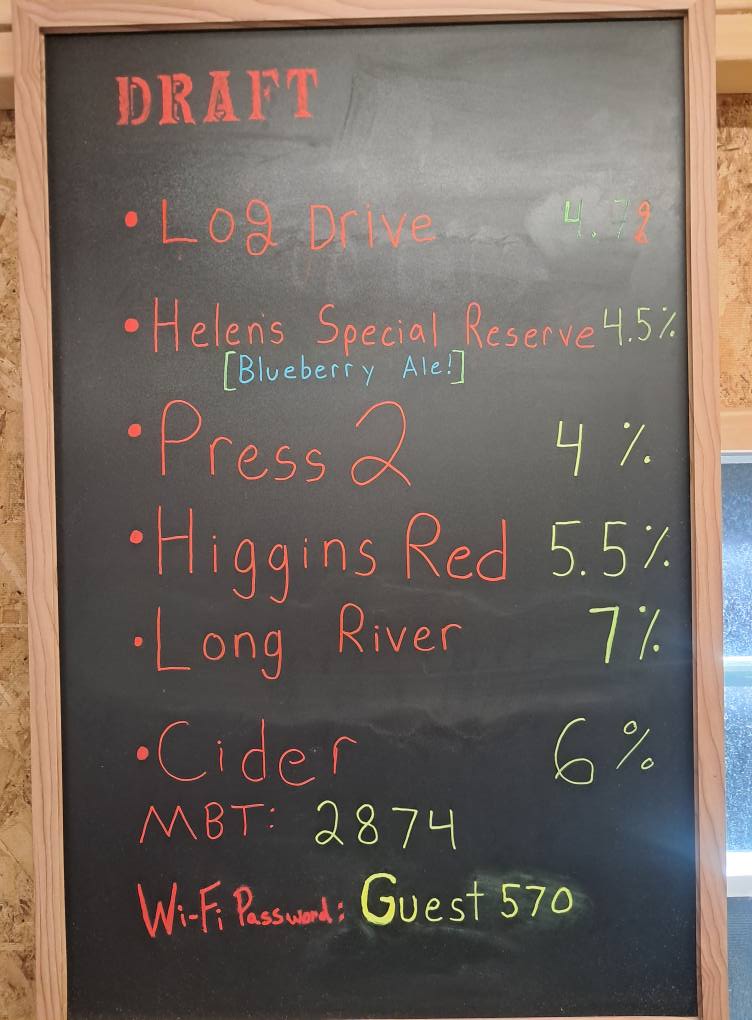 DRAFT
• Log Drive 4.7
• Helen's Special Reserve 4.5%
[Blueberry Ale!]
• Press 2 4 %
• Higgins Red 5.5%
• Long River 7%
• Cider 6%
MBT: 2874
Wi-Fi Password: Guest 570